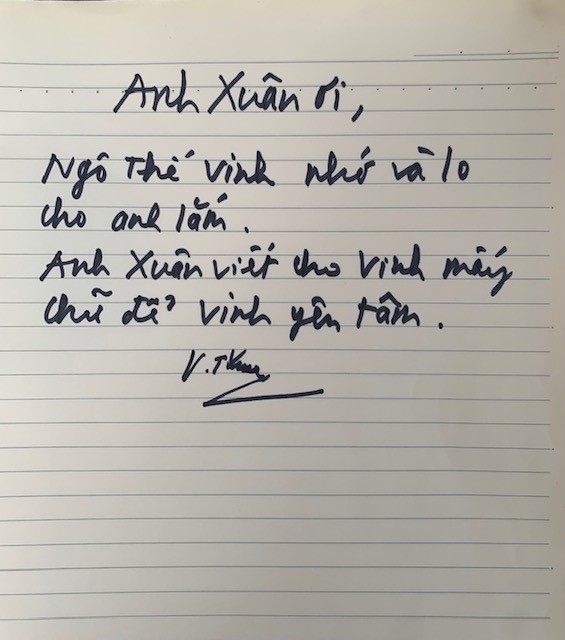 Anh Xuân ơi,
Ngô Thế Vinh nhớ và lo
cho anh lắm.
Anh Xuân viết cho Vinh mấy
chữ để Vinh yên tâm.